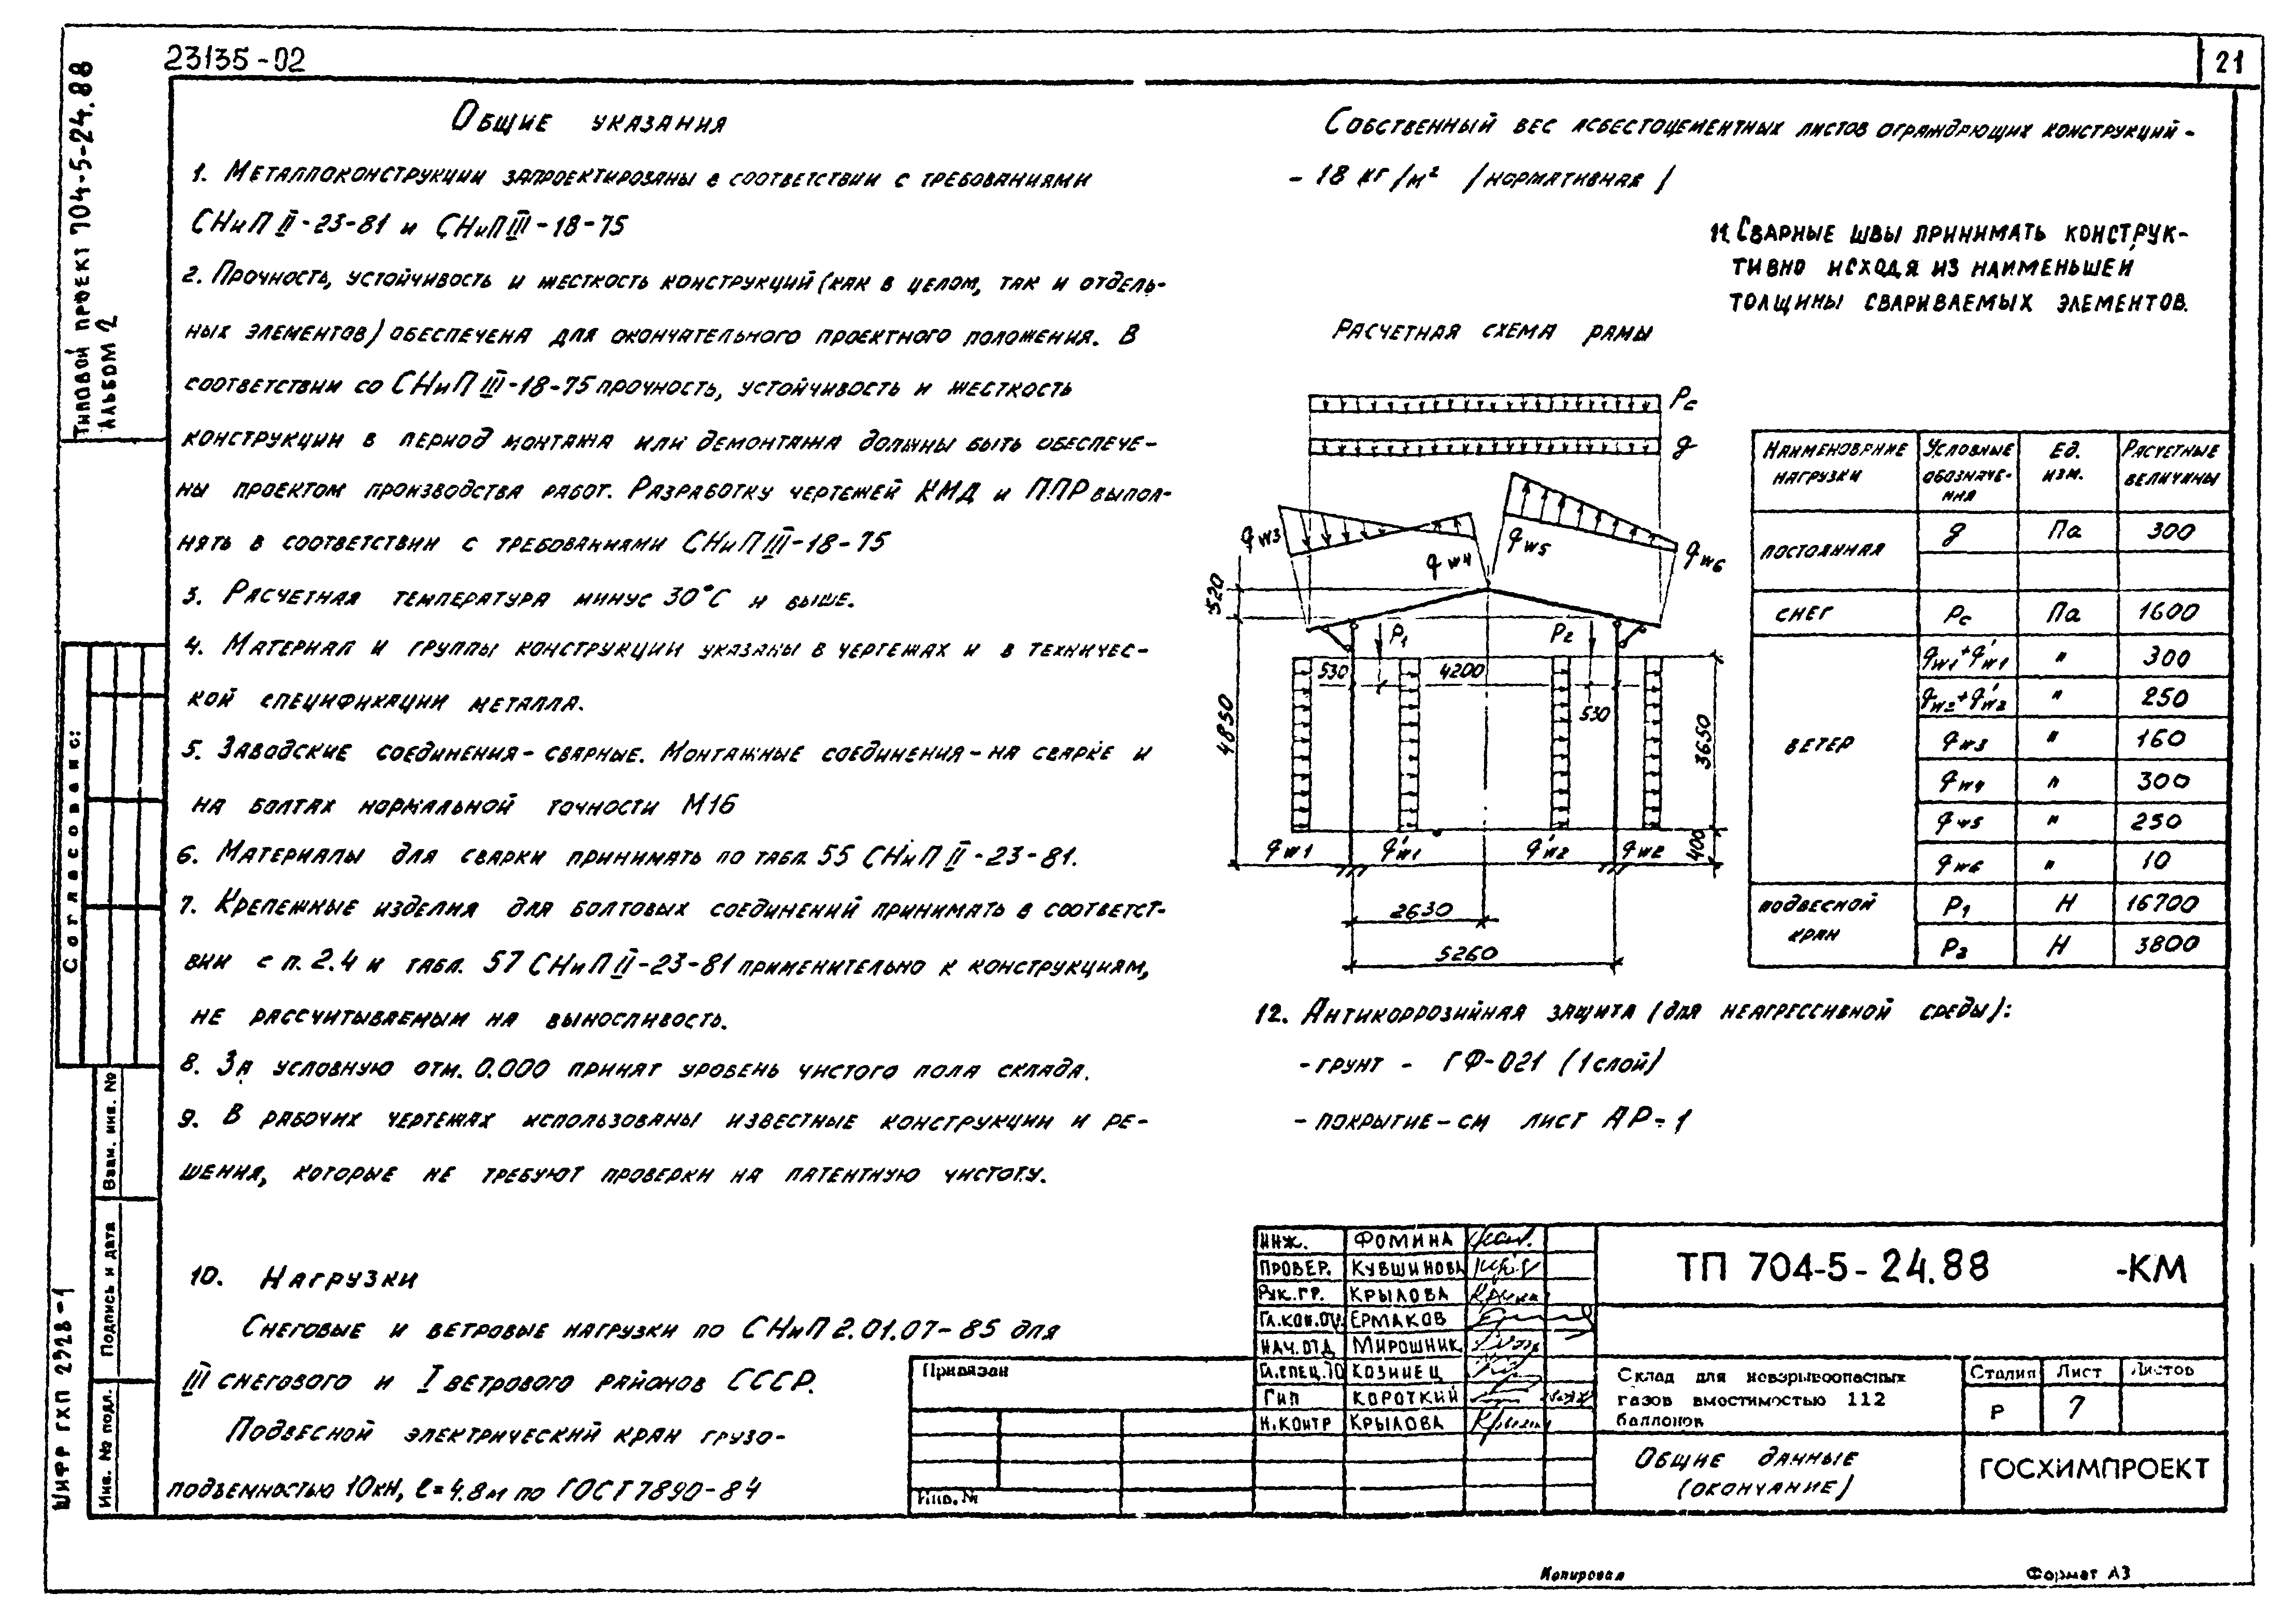 23135-02
21
Типовой проект 704-5-24.88
Альбом 2
Согласовано:
Взам. инв. №
Подпись и дата
Инв. № подл.
Шифр ГХП 2928-1
Общие указания
1. Металлоконструкции запроектированы в соответствии с требованиями
СНиП II-23-81 и СНиП III-18-75
2. Прочность, устойчивость и жесткость конструкций (как в целом, так и отдель-
ных элементов) обеспечена для окончательного проектного положения. В
соответствии со СНиП III-18-75 прочность, устойчивость и жесткость
конструкции в период монтажа или демонтажа должны быть обеспече-
ны проектом производства работ. Разработку чертежей КМД и ППР выпол-
нять в соответствии с требованиями СНиП III-18-75
3. Расчетная температура минус 30°С и выше.
4. Материал и группы конструкции указаны в чертежах и в техничес-
кой спецификации металла.
5. Заводские соединения - сварные. Монтажные соединения - на сварке и
на болтах нормальной точности М16
6. Материалы для сварки принимать по табл. 55 СНиП II-23-81.
7. Крепежные изделия для болтовых соединений принимать в соответст-
вии с п. 2.4 и табл. 57 СНиП II-23-81 применительно к конструкциям,
не рассчитываемым на выносливость.
8. За условную отм. 0.000 принят уровень чистого пола склада.
9. В рабочих чертежах использованы известные конструкции и ре-
шения, которые не требуют проверки на патентную чистоту.
10. Нагрузки
Снеговые и ветровые нагрузки по СНиП 2.01.07-85 для
III снегового и I ветрового районов СССР.
Подвесной электрический кран грузо-
подъемностью 10кН, ℓ=4.8м по ГОСТ 7890-84
Собственный вес асбестоцементных листов ограждающих конструкций -
- 18 кг/м² /нормативная/
11. Сварные швы принимать конструк-
тивно исходя из наименьшей
толщины свариваемых элементов.
Расчетная схема рамы
Pс
g
qw3
qw4
qw5
qw6
520
P1
P2
530
4200
530
4850
3650
400
qw1
q'w1
q'w2
qw2
2630
5260
Наименование нагрузки
Условные обозначе-ния
Ед. изм.
Расчетные величины
постоянная
g
Па
300
снег
Pс
Па
1600
ветер
qw1+q'w1
"
300
qw2+q'w2
"
250
qw3
"
160
qw4
"
300
qw5
"
250
qw6
"
10
подвесной кран
P1
Н
16700
P2
Н
3800
12. Антикоррозийная защита (для неагрессивной среды):
- грунт - ГФ-021 (1 слой)
- покрытие - см лист АР-1
Инж. Фомина
Провер. Кувшинова
Рук.гр. Крылова
Гл.кон.од. Ермаков
Нач.отд Мирошник
Гл.спец.ТО Козинец
Гип Короткий
Н.контр Крылова
Привязан
Инв.№
ТП 704-5-24.88 -КМ
Склад для невзрывоопасных
газов вместимостью 112
баллонов
Стадия Лист Листов
Р 7
Общие данные
(окончание)
ГОСХИМПРОЕКТ
Копировал
Формат А3